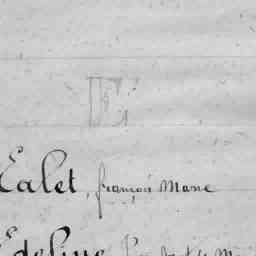 E
Ealet, françois Marie
Edeline